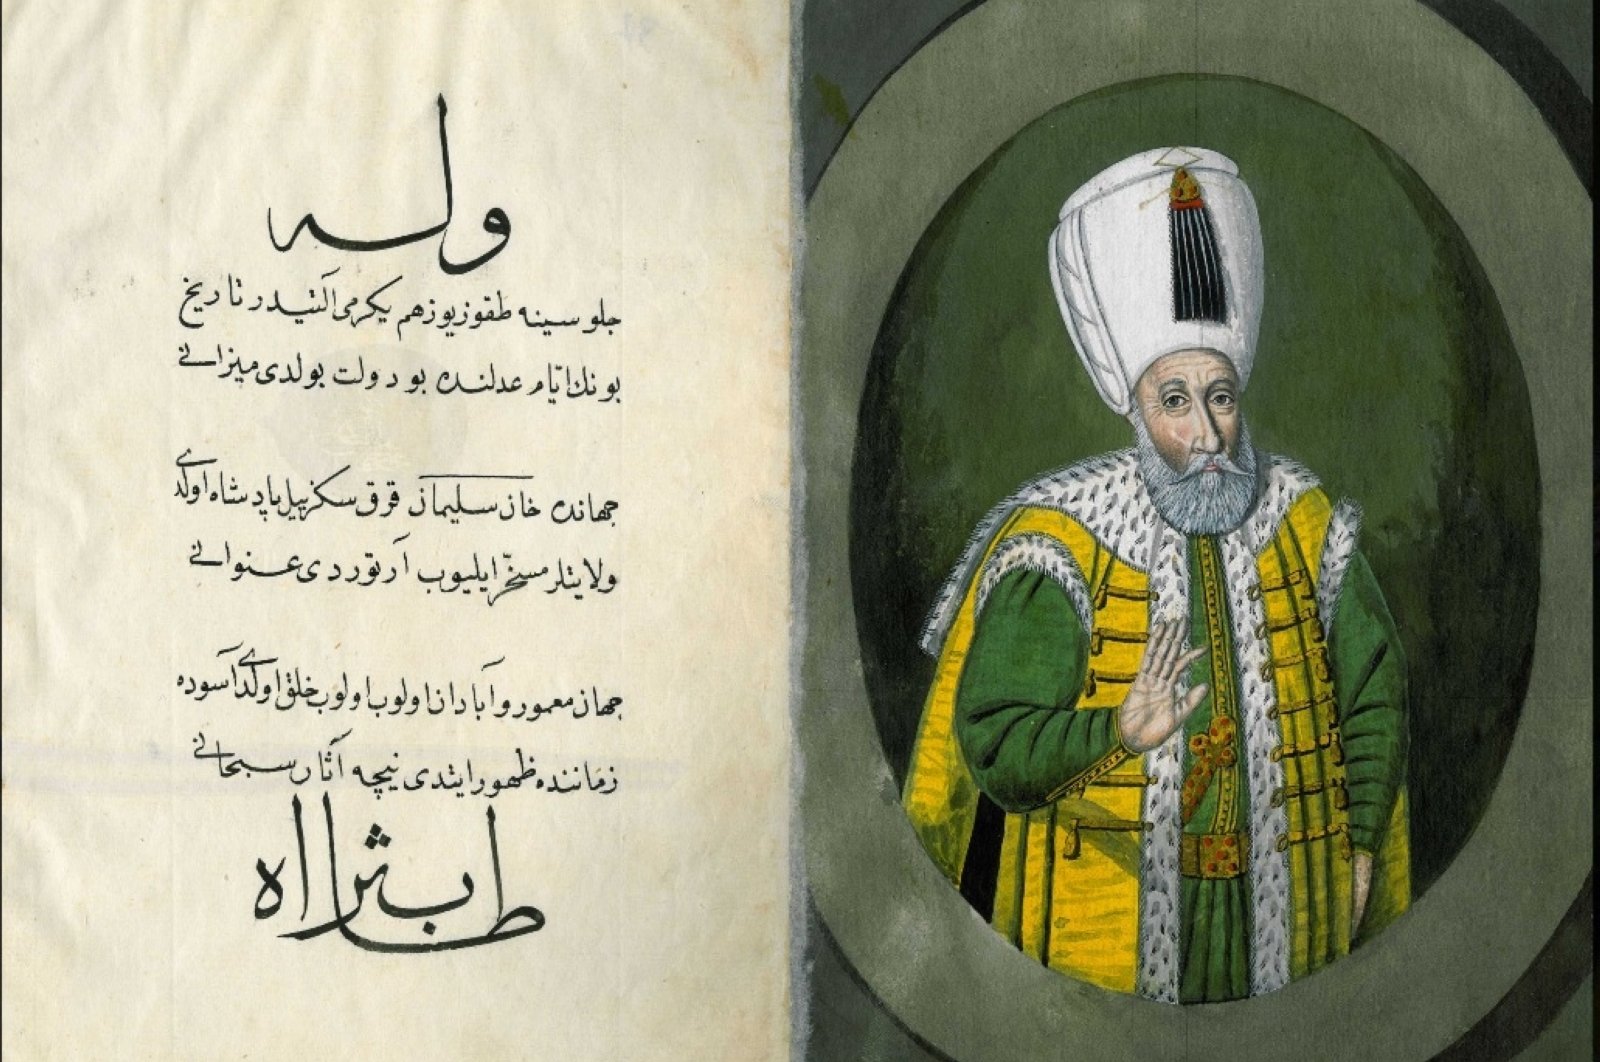 وله
جلوسینه طقوز یوز هم یکرمی التیدر تاریخ
بونك ایّام عدلنده بو دولت بولدی میزانی
جهانده خان سلیمان قرق سکز ییل پادشاه اولدی
ولایتلر مسخّر ایلیوب آرتوردی عنوانی
جهان معمور و آبادان اولوب اولوب خلق اولدی آسوده
زماننده ظهور ایتدی نیچه آثار سبحانی
طاب ثراه